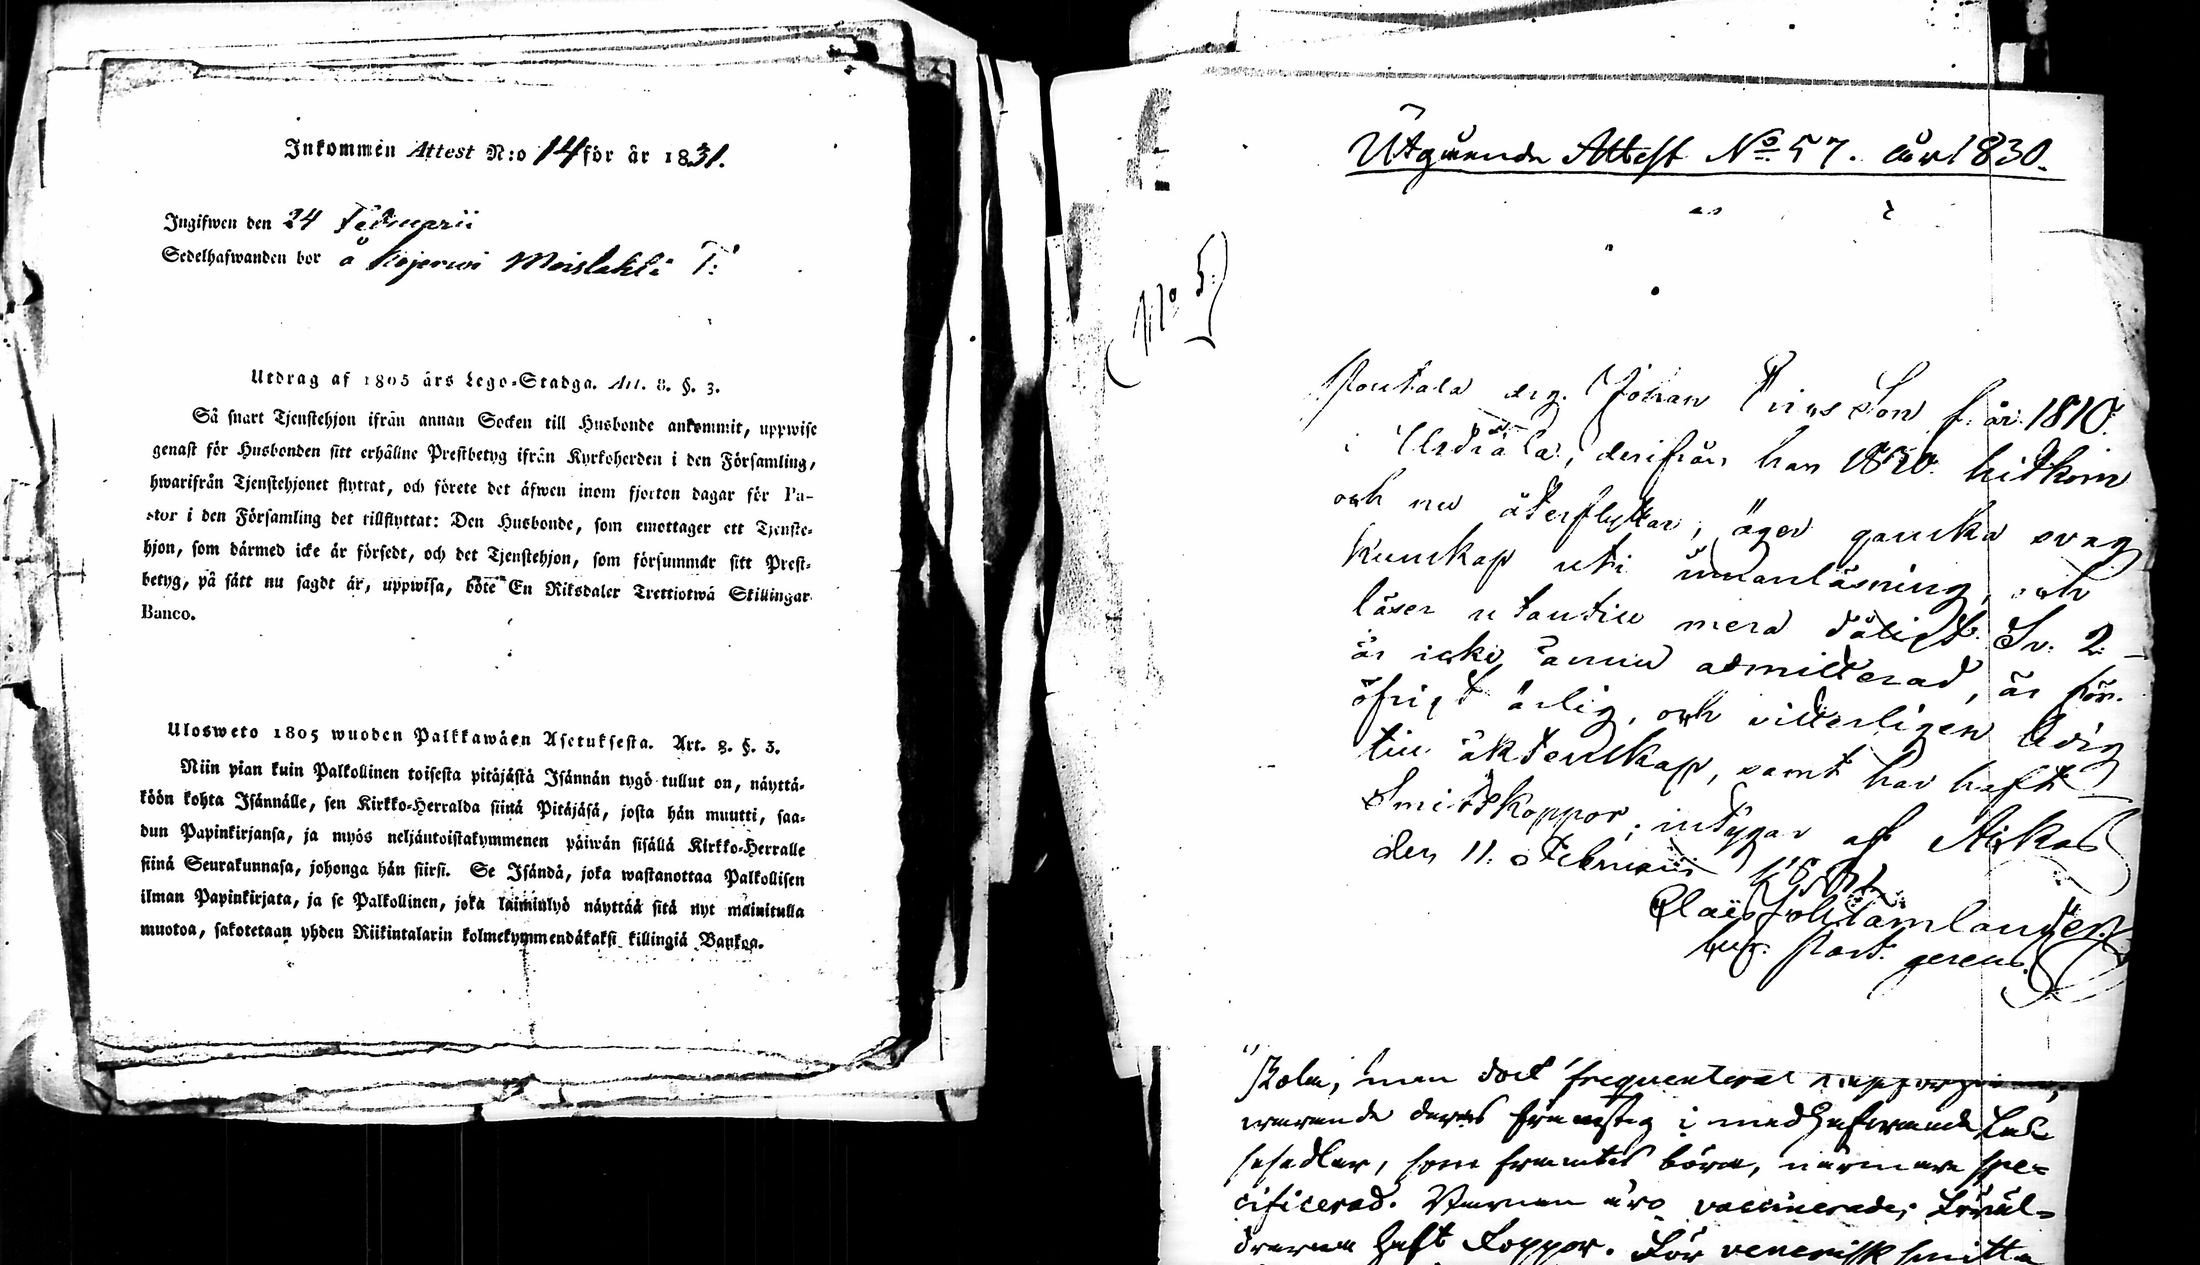 Inkommen Attest N:o 14 för år 1831.
Ingifwen den 24 Februarii
Sedelhafwanden bor å Kojerwi Moislahti T:
Utdrag af 1805 års Lego-Stadga. Art. 8. §. 3.
Så snart Tjenstehjon ifrån annan Socken till Husbonde ankommit, uppwise
genast för Husbonden sitt erhållne Prestbetyg ifrån Kyrkoherden i den Församling,
hwarifrån Tjenstehjonet flyttat, och förete det äfwen inom fjorton dagar för Pa-
stor i den Församling det tillflyttat: Den Husbonde, som emottager ett Tjenste-
hjon, som därmed icke är försedt, och det Tjenstehjon, som försummar sitt Prest-
betyg, på sätt nu sagdt är, uppwisa, böte En Riksdaler Trettiotwå Skillingar
Banco.
Ulosweto 1805 wuoden Palkkawäen Asetuksesta. Art. 8. §. 3.
Niin pian kuin Palkollinen toisesta pitäjästä Isännän tygö tullut on, näyttä-
köön kohta Isännälle, sen Kirkko-Herralda siinä Pitäjäsä, josta hän muutti, saa-
dun Papinkirjansa, ja myös neljäntoistakymmenen päiwän sisällä Kirkko-Herralle
siinä Seurakunnasa, johonga hän siirsi. Se Isändä, joka wastanottaa Palkollisen
ilman Papinkirjata, ja se Palkollinen, joka laiminlyö näyttää sitä nyt mainitulla
muotoa, sakotetaan yhden Riikintalarin kolmekymmendäkaksi killingiä Bankoa.
Utgående Attest No 57. år 1830.
(No 5)
drg. Johan f. år 1810.
i Urdiala, derifrån han 1830 hitkom
och nu återflyttar, äger ganska svag
kunskap uti innanläsning, och
läser utantill mera dåligt. Sv. 2.
är icke ännu admitterad, är för
öfrigt ärlig, och vitterligen ledig
till äktenskap, samt har haft
Smittkoppor; intygar af Akkas
den 11. Februarii
Tamlander.
Past. gerens.
men dock frequenterat
warande deras framsteg i medhafwande Läs-
sesedlar, som framtes böra, närmare spe-
cificerad. Barnen äro vaccinerade; Föräl-
drarna haft Koppor. För venerisk smitta